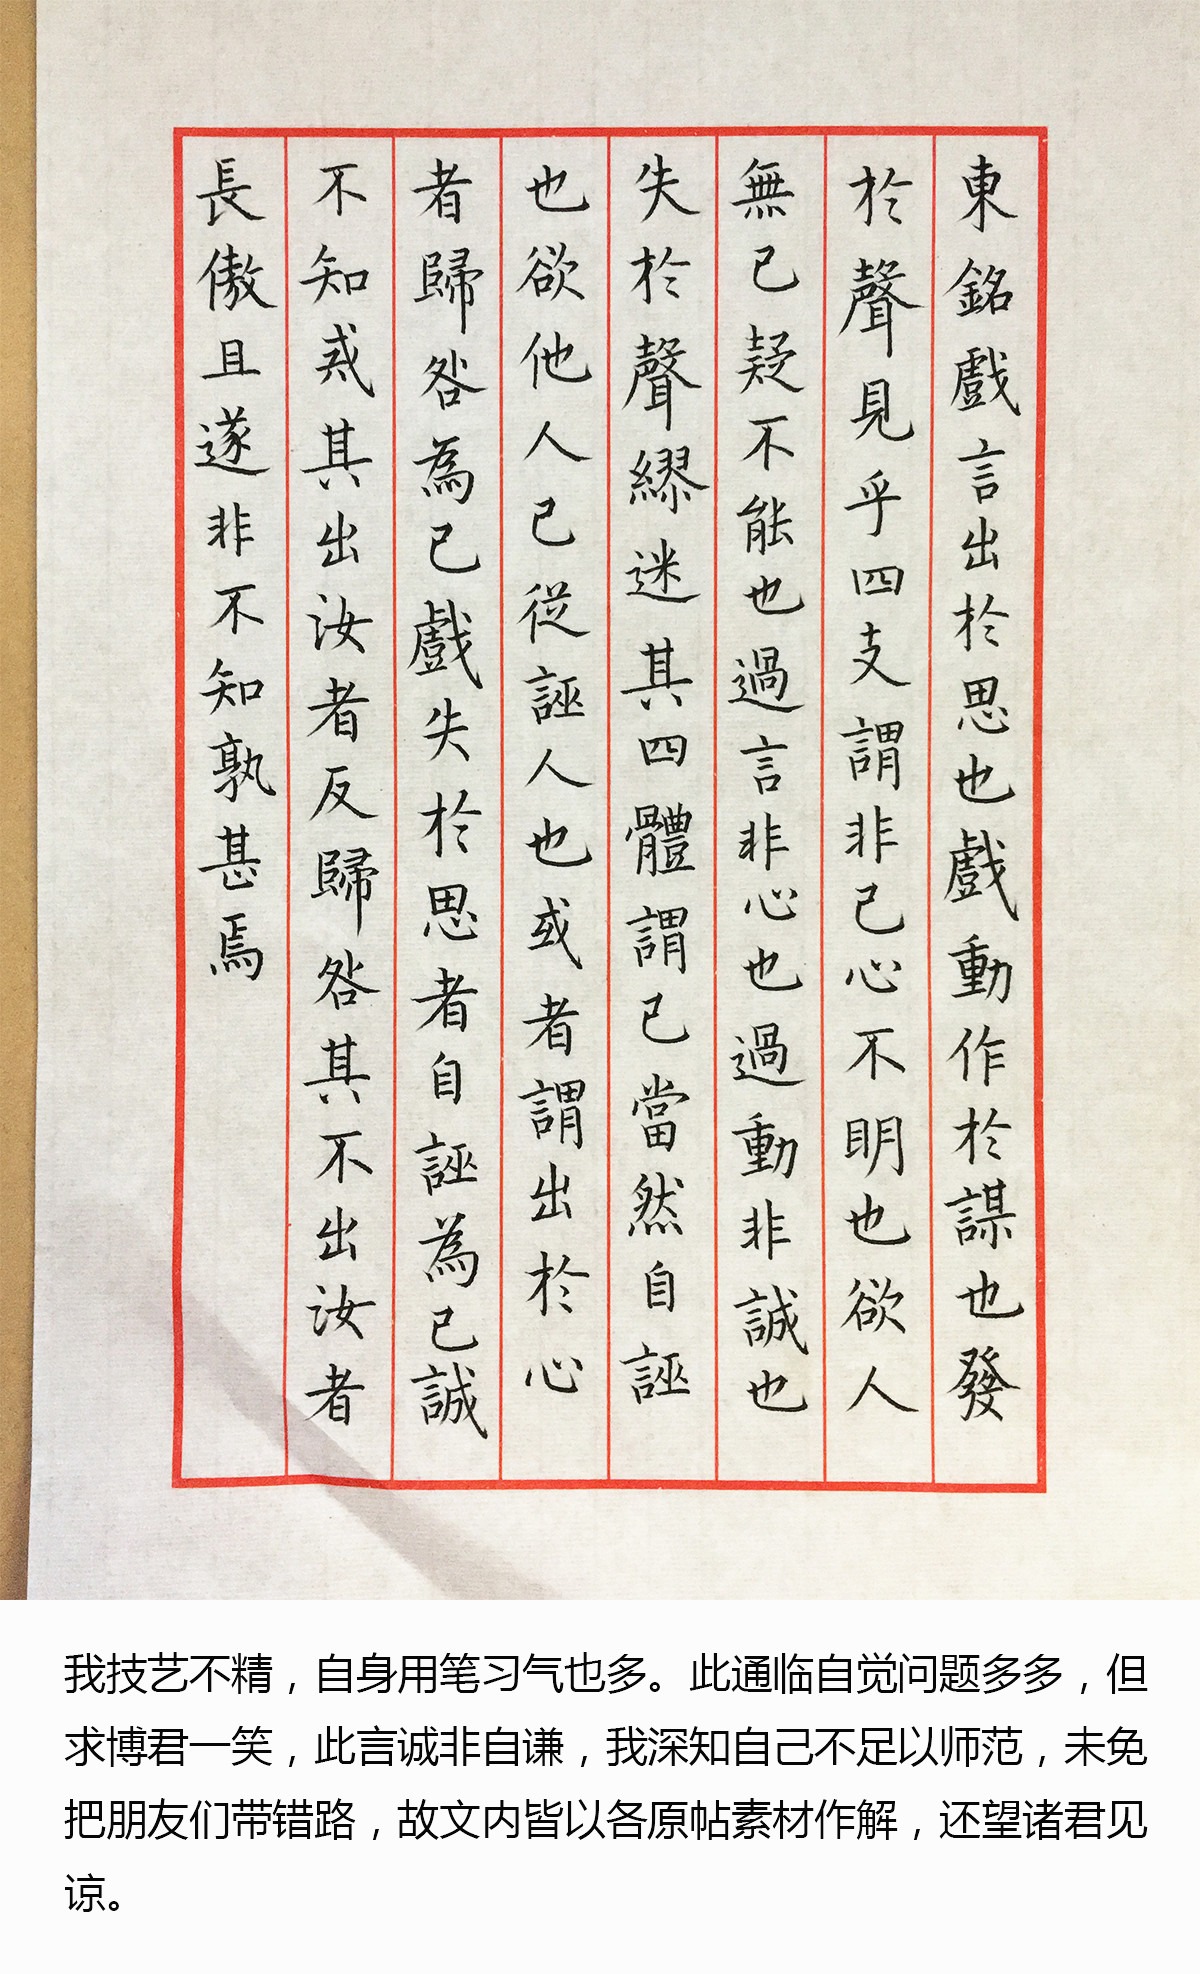 東銘戲言出於思也戲動作於謀也發
於聲見乎四支謂非己心不明也欲人
無己疑不能也過言非心也過動非誠也
失於聲繆迷其四體謂己當然自誣
也欲他人己從誣人也或者謂出於心
者歸咎為己戲失於思者自誣為己誠
不知戒其出汝者反歸咎其不出汝者
長傲且遂非不知孰甚焉
我技艺不精，自身用笔习气也多。此通临自觉问题多多，但
求博君一笑，此言诚非自谦，我深知自己不足以师范，未免
把朋友们带错路，故文内皆以各原帖素材作解，还望诸君见
谅。